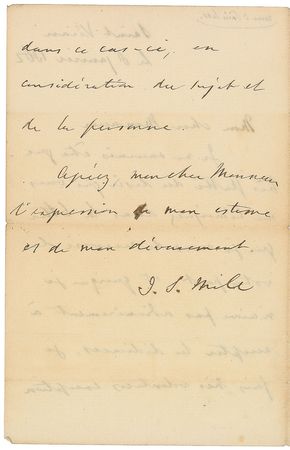 dans ce cas-ci, en
considération du sujet et
de la personne
Agréez mon cher Monsieur
l'expression de mon estime
et de mon dévouement
J. S. Mill